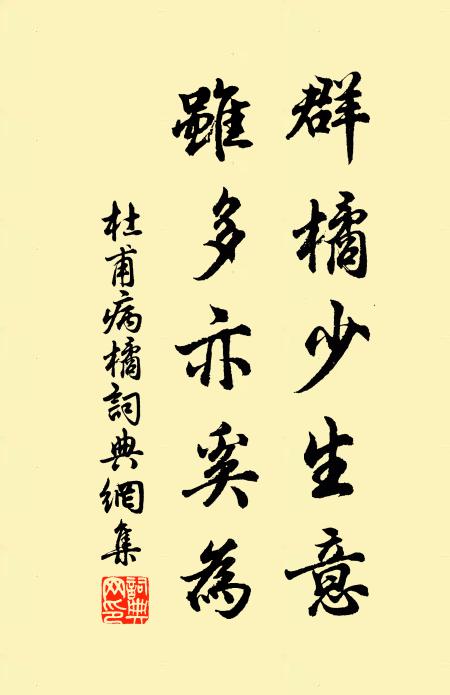 群橘少生意
雖多亦奚為
杜甫病橘詞典網集
詞典網印